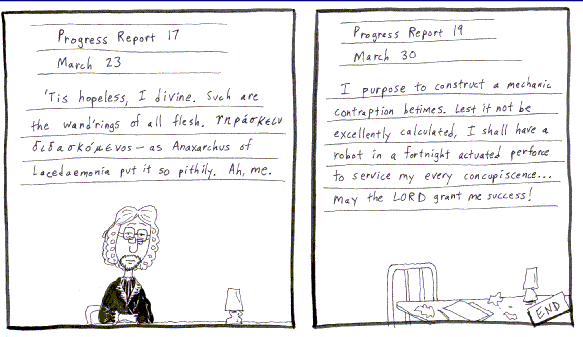 Progress Report 17
March 23
'Tis hopeless, I divine. Such are
the wand'rings of all flesh. γηράσκειν
διδασκόμενος — as Anaxarchus of
Lacedaemonia put it so pithily. Ah, me.
Progress Report 19
March 30
I purpose to construct a mechanic
contraption betimes. Lest it not be
excellently calculated, I shall have a
robot in a fortnight actuated perforce
to service my every concupiscence...
May the LORD grant me success!
END